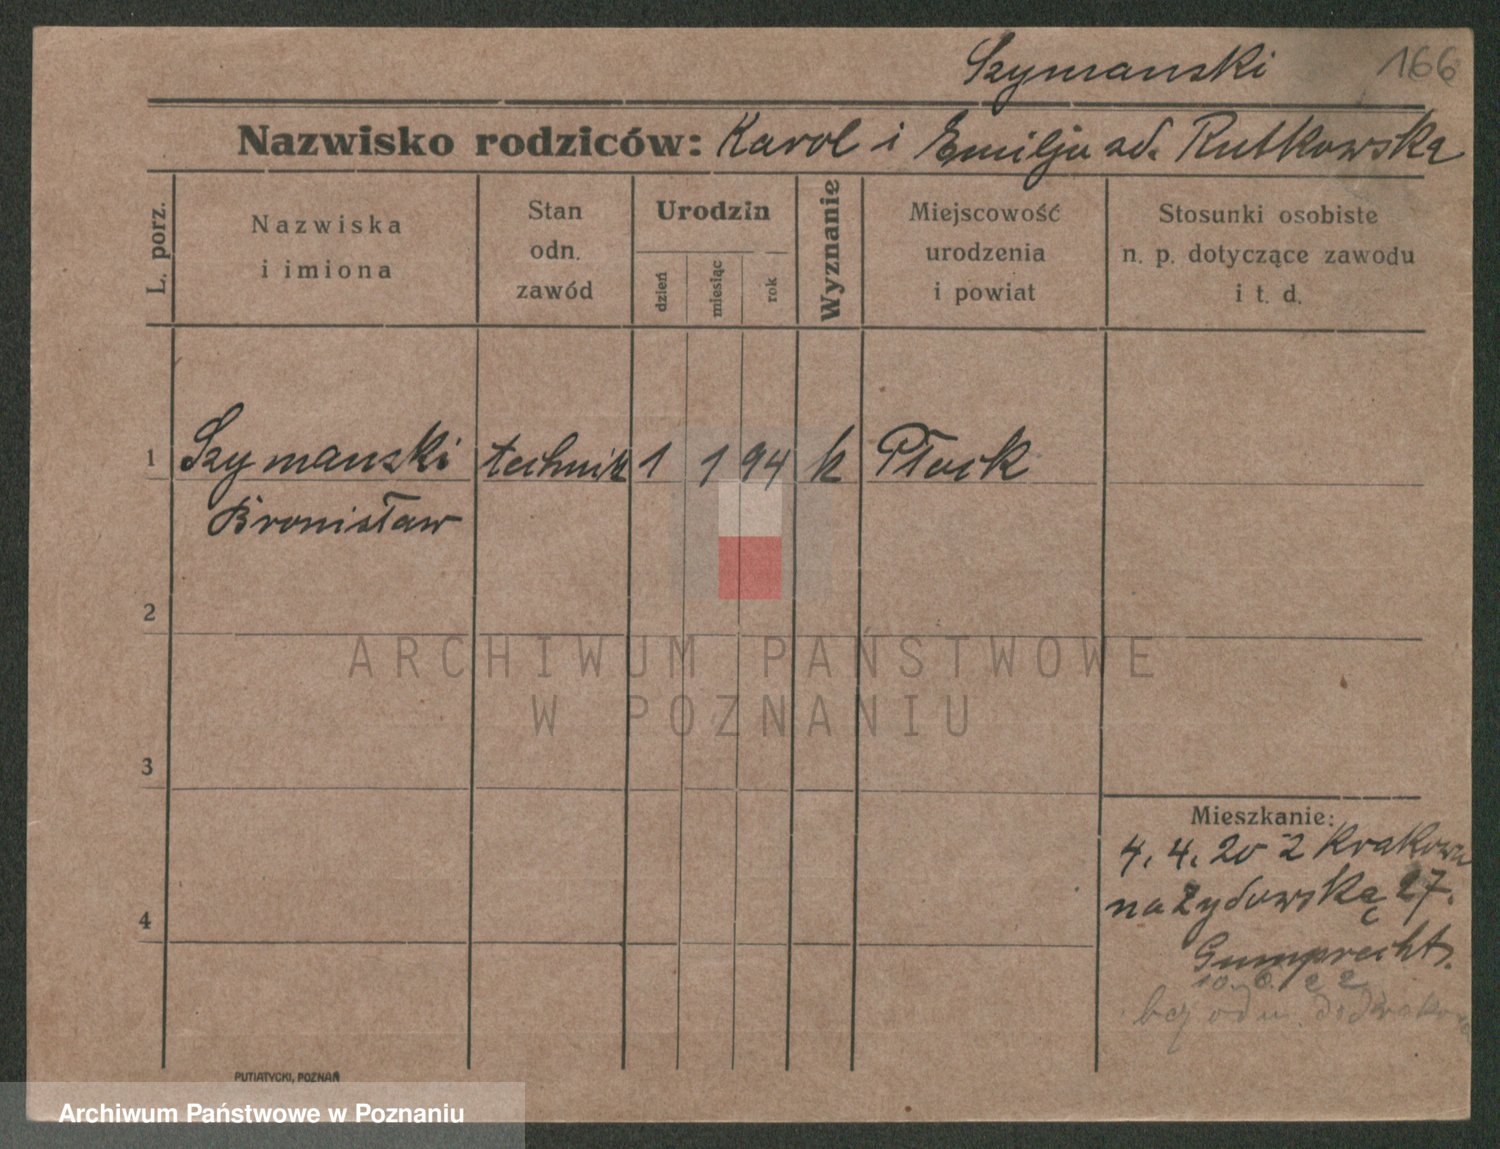 Szymanski 166
Nazwisko rodziców: Karol i Emilja zd. Rutkowska
L. porz.
Nazwiska
i imiona
Stan
odn.
zawód
Urodzin
dzień
miesiąc
rok
Wyznanie
Miejscowość
urodzenia
i powiat
Stosunki osobiste
n. p. dotyczące zawodu
i t. d.
1 Szymanski technik 1 1 94 k Płock
Bronisław
2
3
4
Mieszkanie:
4. 4. 20 z Krakowa
na Żydowską 27.
Gumprecht.
10. 6. 22
bez odm. do Krakowa
PUTIATYCKI, POZNAŃ
ARCHIWUM PAŃSTWOWE
W POZNANIU
Archiwum Państwowe w Poznaniu